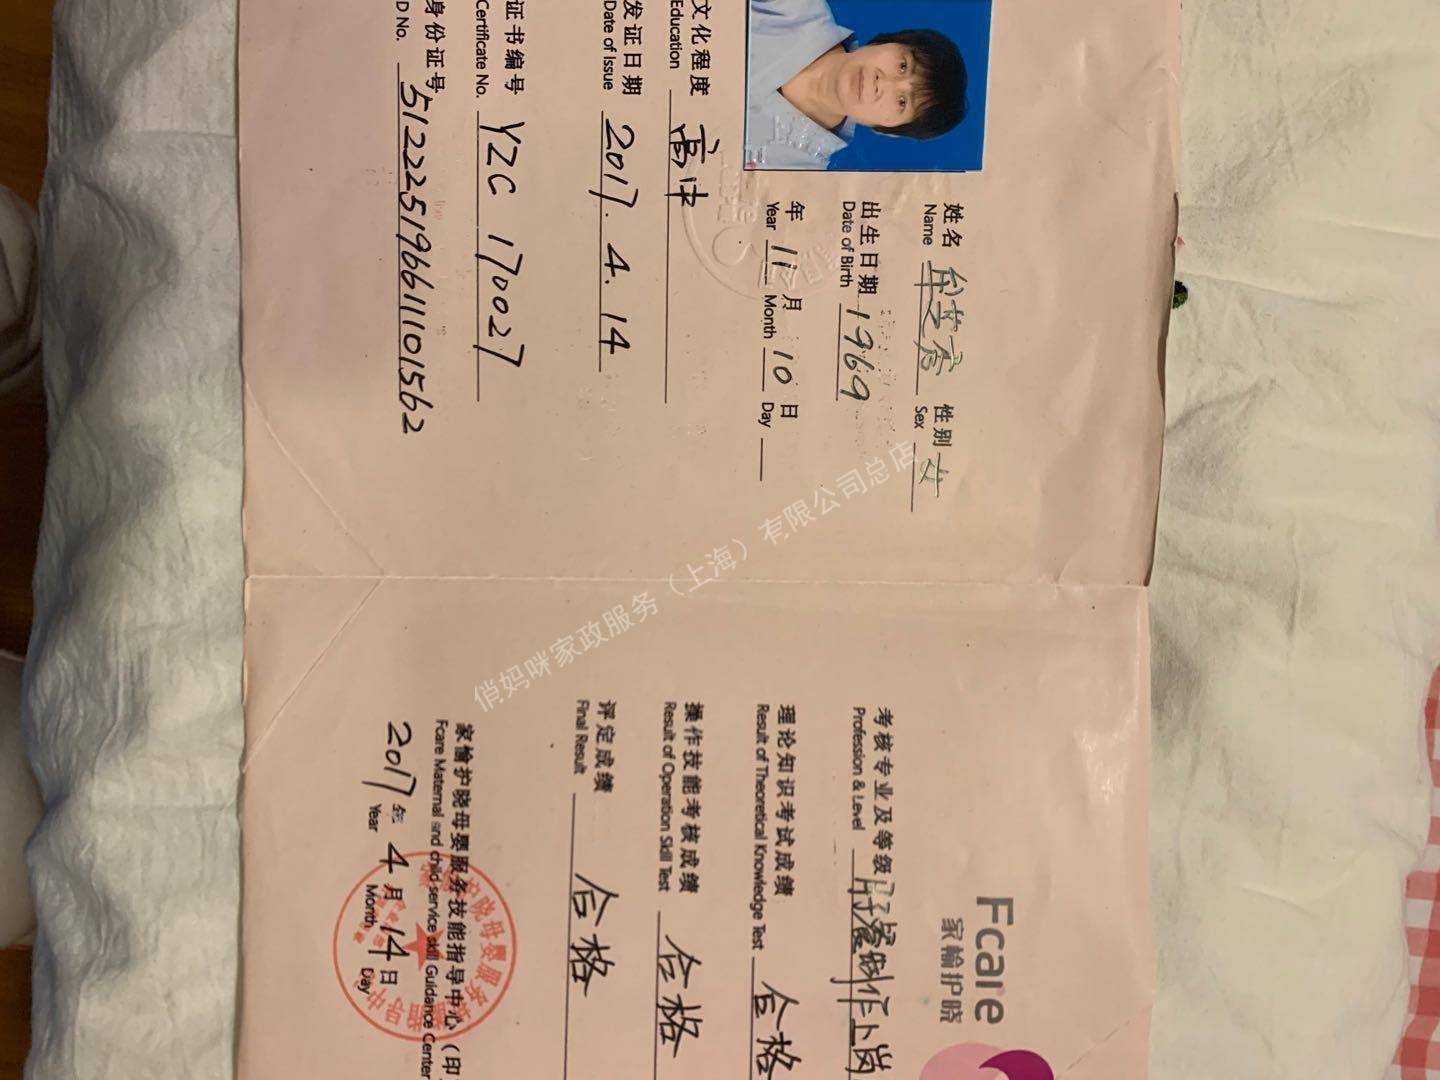 姓名 牟芝秀 性别 女
Name Sex
出生日期 1969
Date of Birth
年 11 月 10 日
Year Month Day
文化程度 高中
Education
发证日期 2017.4.14
Date of Issue
证书编号 YZC 170027
Certificate No.
身份证号 512225196611101562
D No.
Fcare
家愉护晓
考核专业及等级
Profession & Level
理论知识考试成绩 合格
Result of Theoretical Knowledge Test
操作技能考核成绩 合格
Result of Operation Skill Test
评定成绩 合格
Final Result
家愉护晓母婴服务技能指导中心（印
Fcare Maternal and child service skill Guidance Center
2017年 4月 14日
Year Month Day
俏妈咪家政服务（上海）有限公司总店